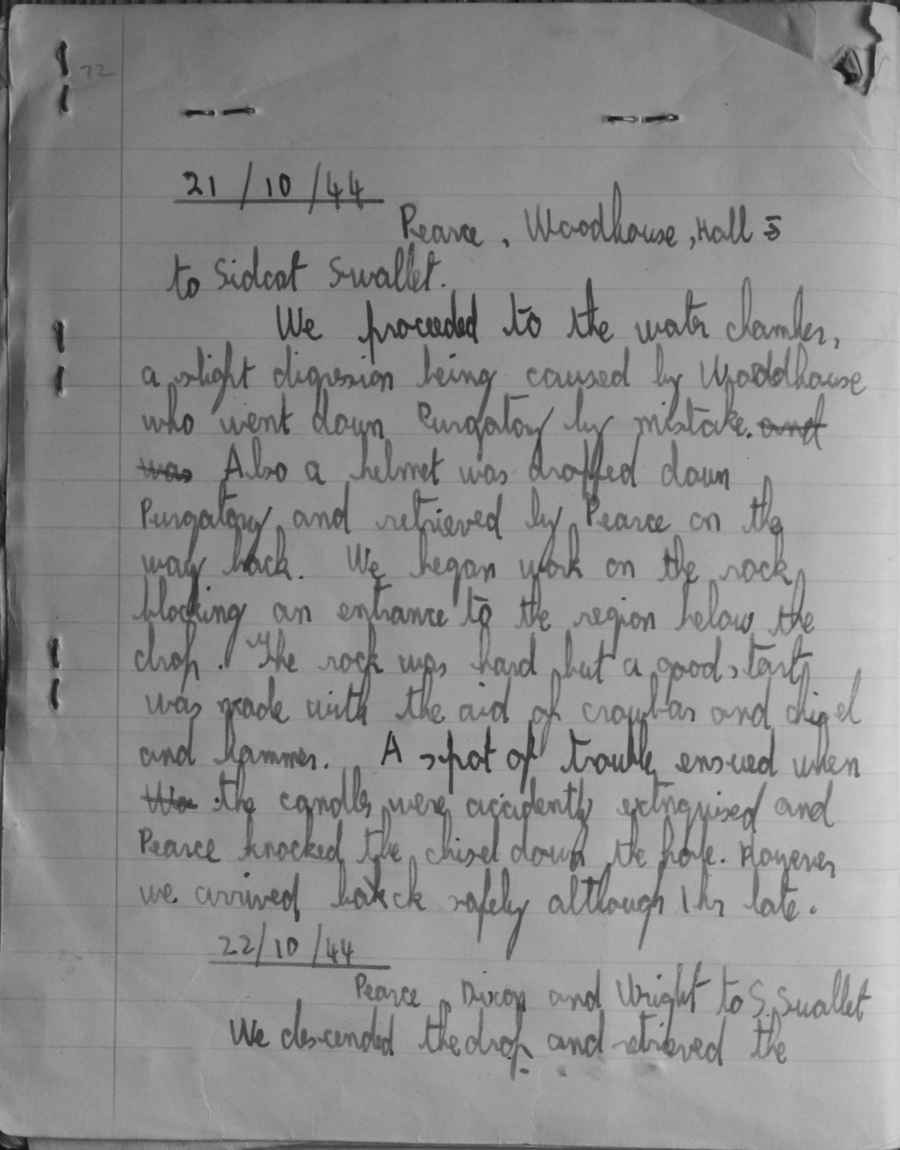 72
21/10/44
Pearce, Woodhouse, Hall
to Sidcot Swallet.
We proceeded to the water chamber,
a slight digression being caused by Woodhouse
who went down Purgatory by mistake. and
was Also a helmet was dropped down
Purgatory and retrieved by Pearce on the
way back. We began work on the rock
blocking an entrance to the region below the
drop. The rock was hard but a good start
was made with the aid of crowbar and chisel
and hammer. A spot of trouble ensued when
the candles were accidently extinguised and
Pearce knocked the chisel down the hole. However
we arrived back safely although 1 hr late.
22/10/44
Pearce, Dixon and Wright to S. Swallet
We descended the drop and retrieved the